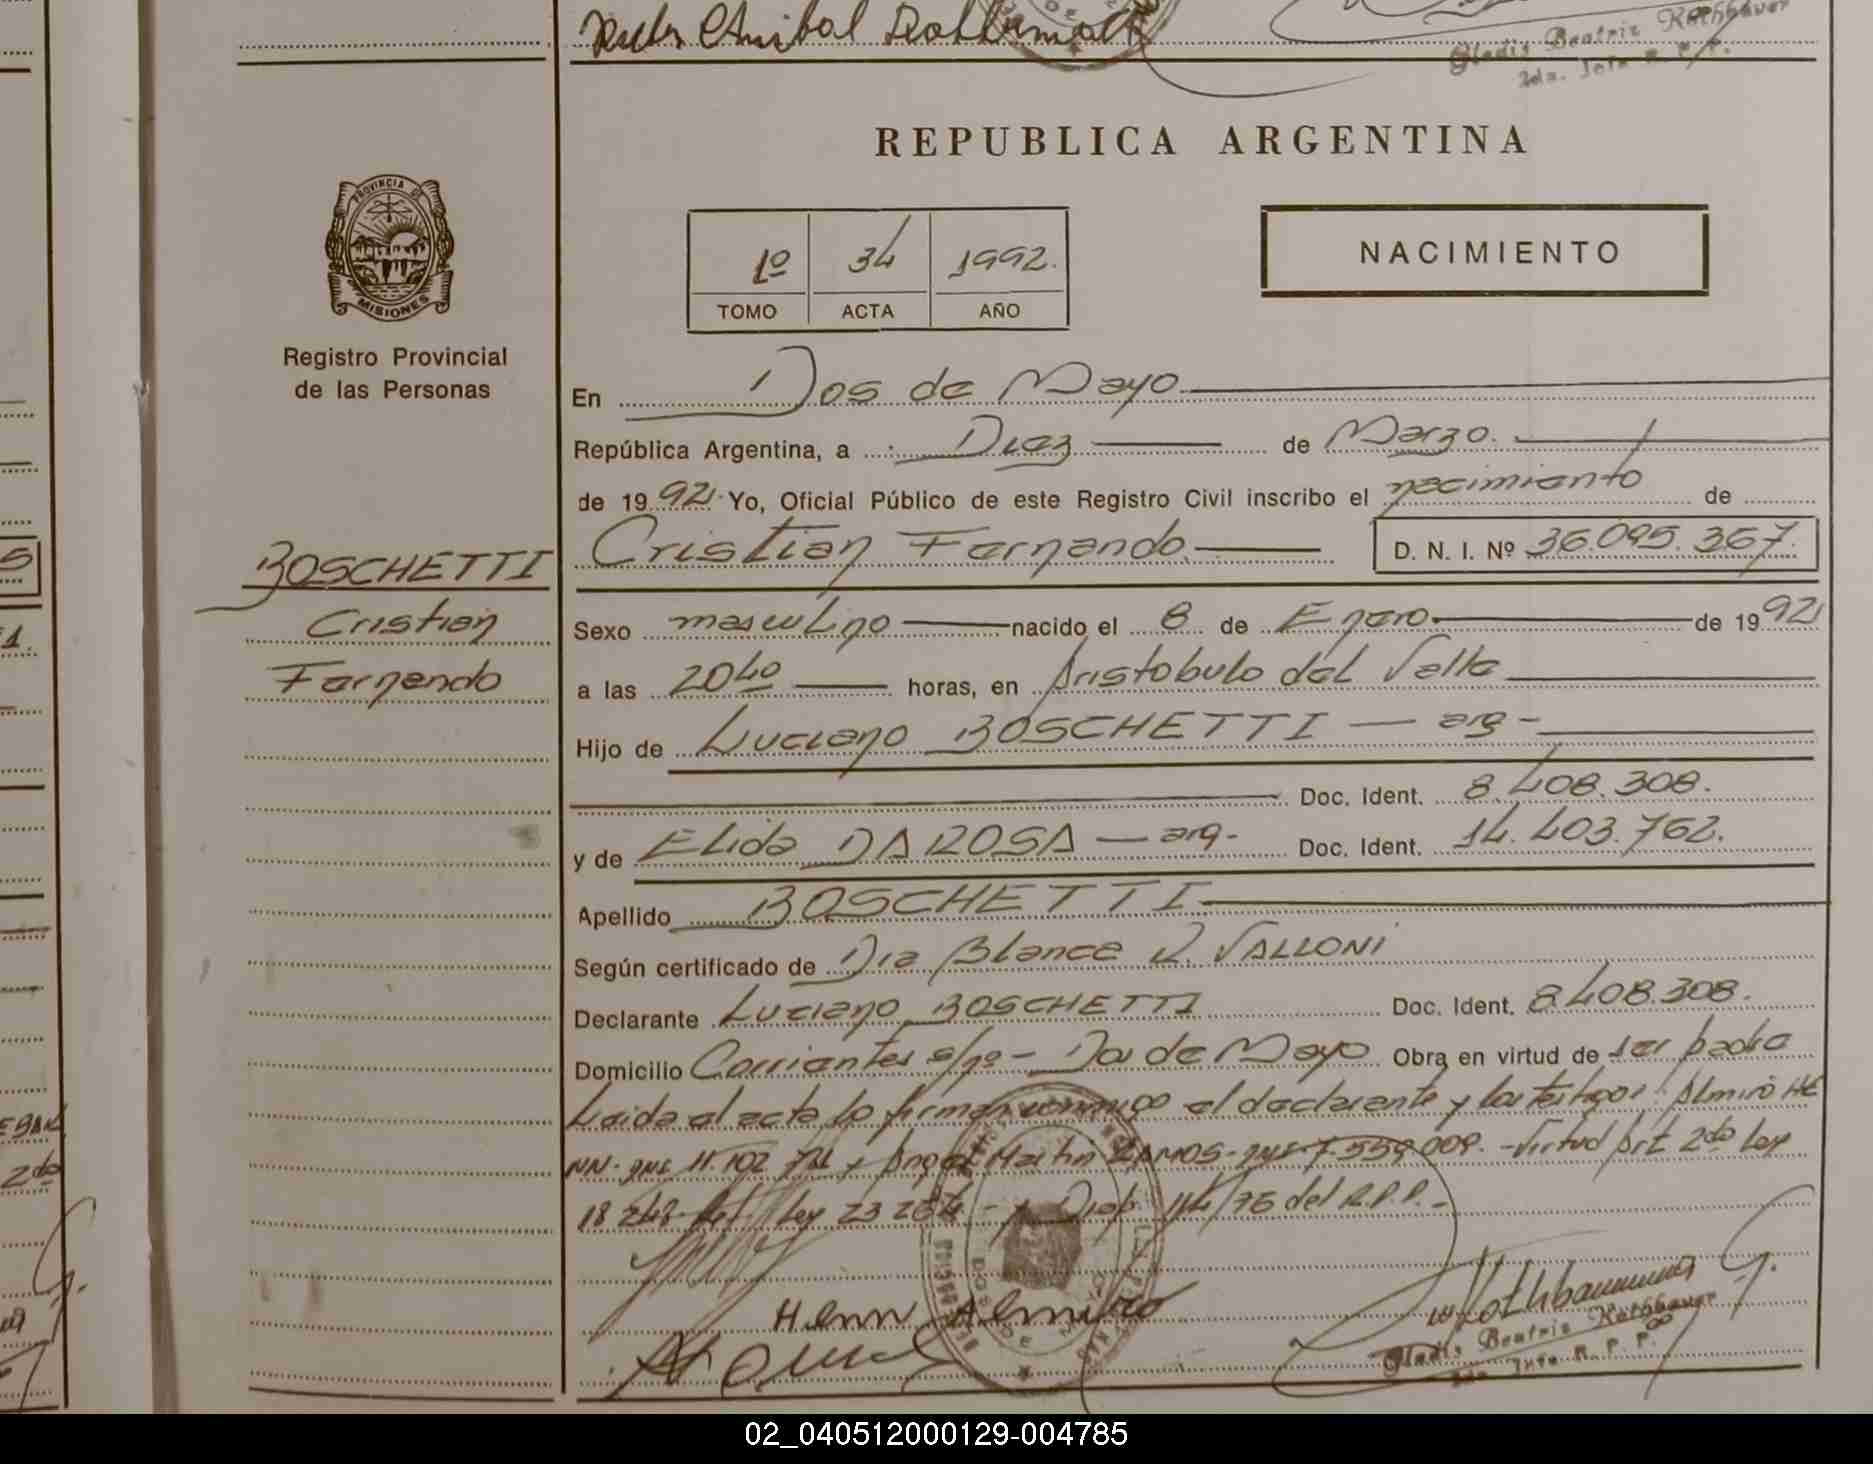 Anibal
Gladis Beatriz Rothbauer
2da. Jefa R. P. P.
REPUBLICA ARGENTINA
PROVINCIA DE
MISIONES
Registro Provincial
de las Personas
1º 34 1992.
TOMO ACTA AÑO
NACIMIENTO
En Dos de Mayo
República Argentina, a Diez de Marzo.
de 1992. Yo, Oficial Público de este Registro Civil inscribo el nacimiento de
Cristian Fernando D. N. I. Nº 36.095.367.
BOSCHETTI
Cristian
Fernando
Sexo masculino nacido el 8 de Enero de 1992
a las 20 40 horas, en Aristobulo del Valle
Hijo de Luciano BOSCHETTI - arg -
Doc. Ident. 8.408.308.
y de Elida DA ROSA - arg - Doc. Ident. 14.403.762.
Apellido BOSCHETTI
Según certificado de Dra Blanca R. VALLONI
Declarante Luciano BOSCHETTI Doc. Ident. 8.408.308.
Domicilio Corrientes s/nº - Dos de Mayo Obra en virtud de ser padre
Leida el acta la firman conmigo el declarante y los testigos: Almiro HE
NN. 11.102 y Angel Martin RAMOS - 7.559.009. - Virtud Art 2do Ley
18 248 - Ley 23 264 - y Disp. 114/76 del R.P.P. -
Henn Almiro
Gladis Beatriz Rothbauer
2da Jefa R. P. P.
02_040512000129-004785